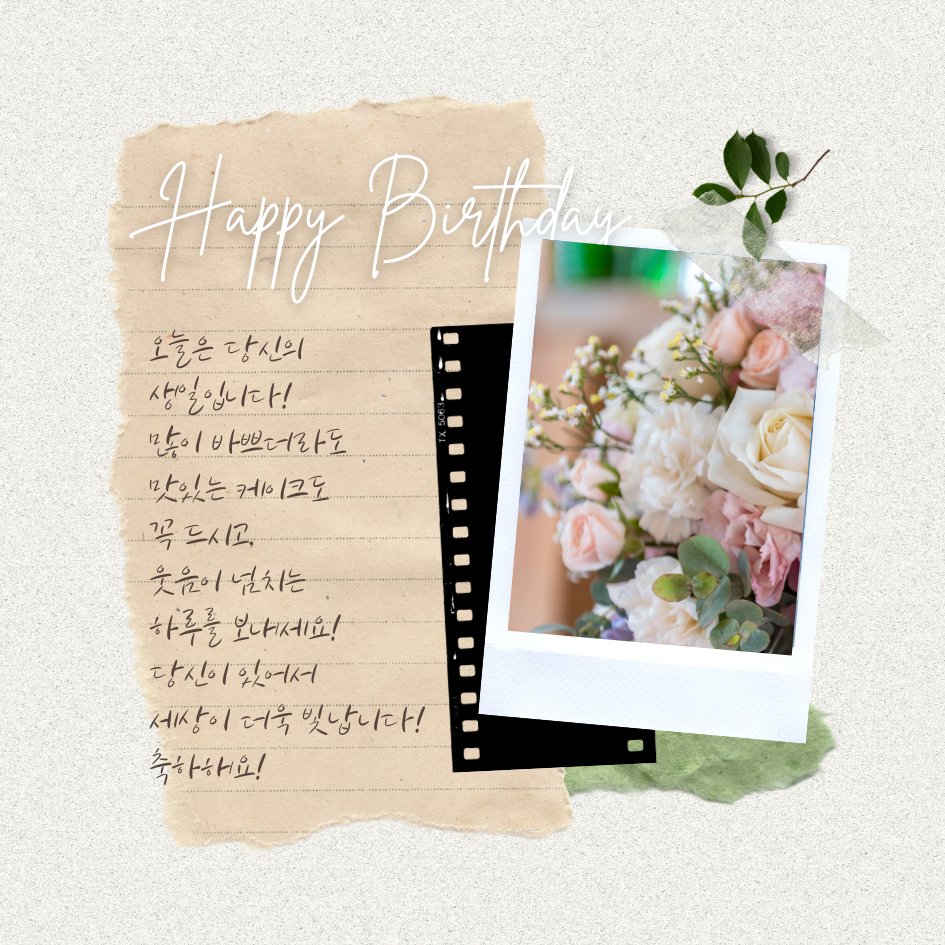 Happy Birthday
오늘은 당신의
생일입니다!
많이 바쁘더라도
맛있는 케이크도
꼭 드시고,
웃음이 넘치는
하루를 보내세요!
당신이 있어서
세상이 더욱 빛납니다!
축하해요!
TX 5063